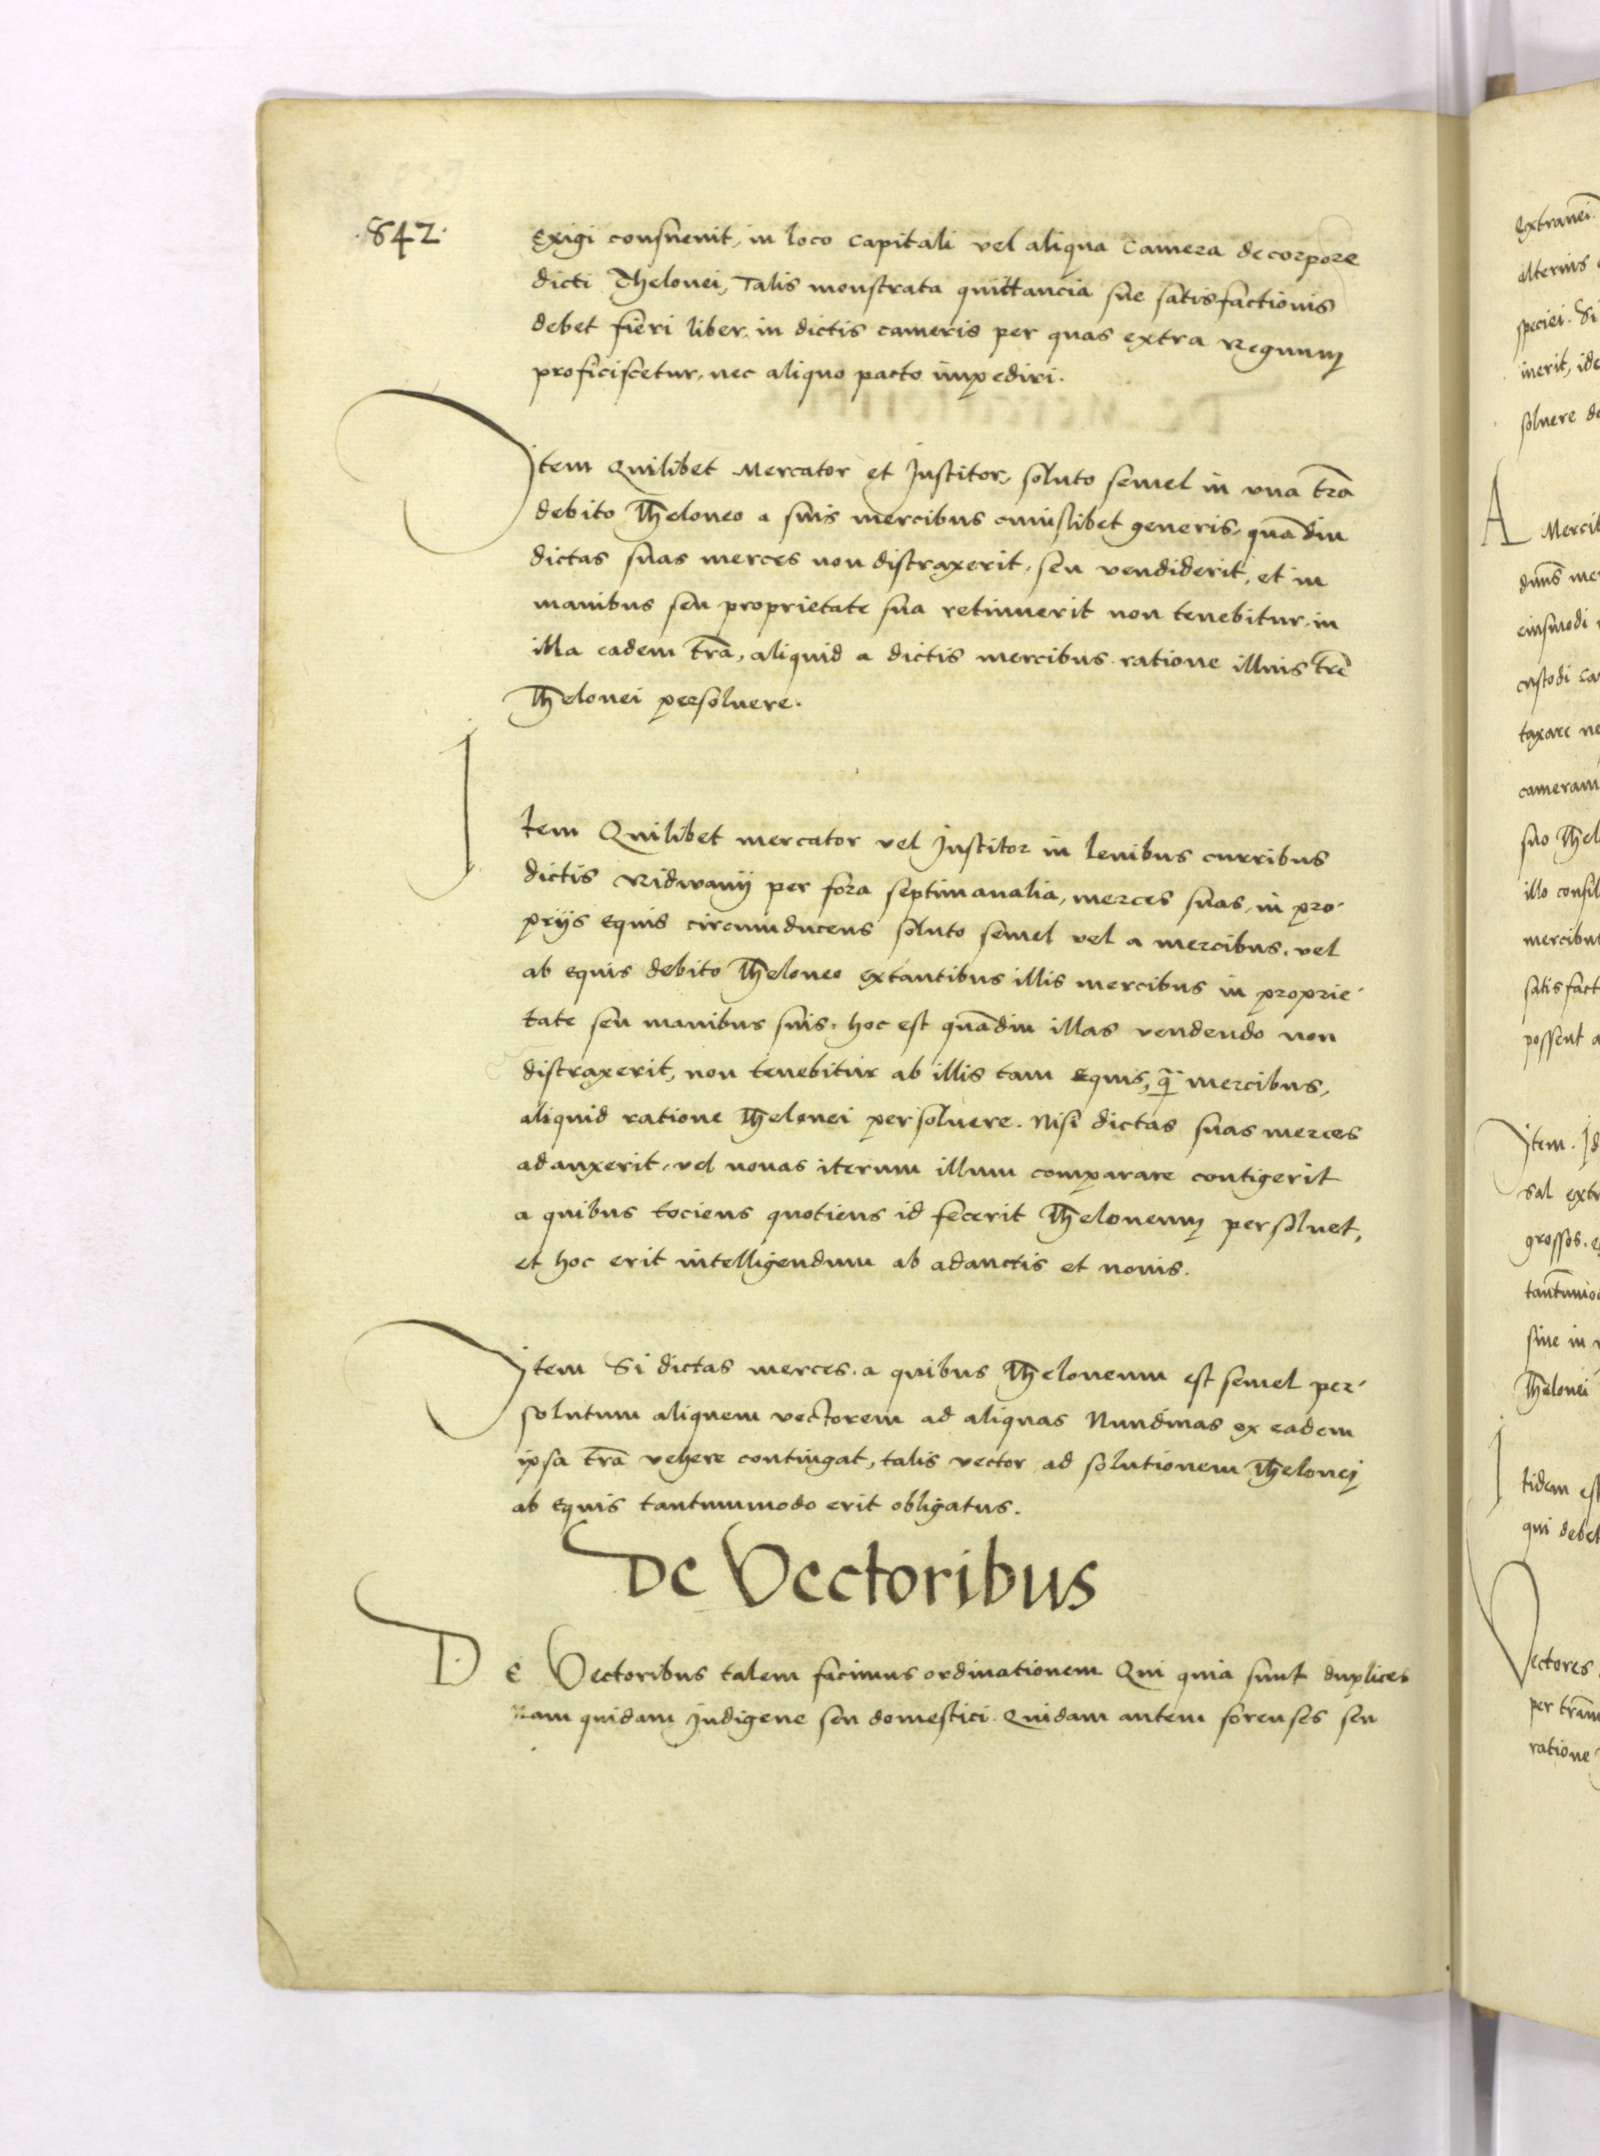 ·842·
Exigi consuevit, in loco capitali vel aliqua Camera de corpore
dicti Thelonei, Talis monstrata quittancia sue satisfactionis
debet fieri liber, in dictis cameris per quas extra Regnum
proficiscetur, nec aliquo pacto impediri.
Item Quilibet Mercator et Institor, soluto semel in una tr̄a
debito Theloneo a suis mercibus cuiuslibet generis, quādiu
dictas suas merces non distraxerit, seu vendiderit, et in
manibus seu proprietate sua retinuerit non tenebitur, in
illa eadem tr̄a, aliquid a dictis mercibus ratione illius tr̄e
Thelonei persoluere.
Item Quilibet mercator vel Institor in levibus curribus
dictis Ridwanij per fora septimanalia, merces suas, in pro-
prijs Equis circumducens soluto semel vel a mercibus, vel
ab Equis debito Theloneo extantibus illis mercibus in proprie-
tate seu manibus suis, hoc est quādiu illas vendendo non
distraxerit, non tenebitur ab illis tam Equis, q̄ mercibus,
aliquid ratione Thelonei persoluere. Nisi dictas suas merces
adauxerit, vel nouas iterum illum comparare contigerit
a quibus tociens quotiens id fecerit Theloneum persoluet,
et hoc erit intelligendum ab adauctis et nouis.
Item Si dictas merces, a quibus Theloneum est semel per-
solutum aliquem vectorem ad aliquas Nundinas ex eadem
ipsa tr̄a vehere contingat, talis vector ad solutionem Thelonei
ab Equis tantummodo erit obligatus.
De Vectoribus
De Vectoribus talem facimus ordinationem Qui quia sunt duplices
Nam quidam Indigene seu domestici. Quidam autem forenses seu
extranei.
alterius
speciei. Si
soluere
A Mercib
eiusmodi
custodi
taxare
cameram
suo Thel
illo consil
mercibus
satisfact
possent
Item. Id
sal extr
grossos.
siue in
Thelonei
Itidem est
qui debet
Vectores
per tr̄am
ratione